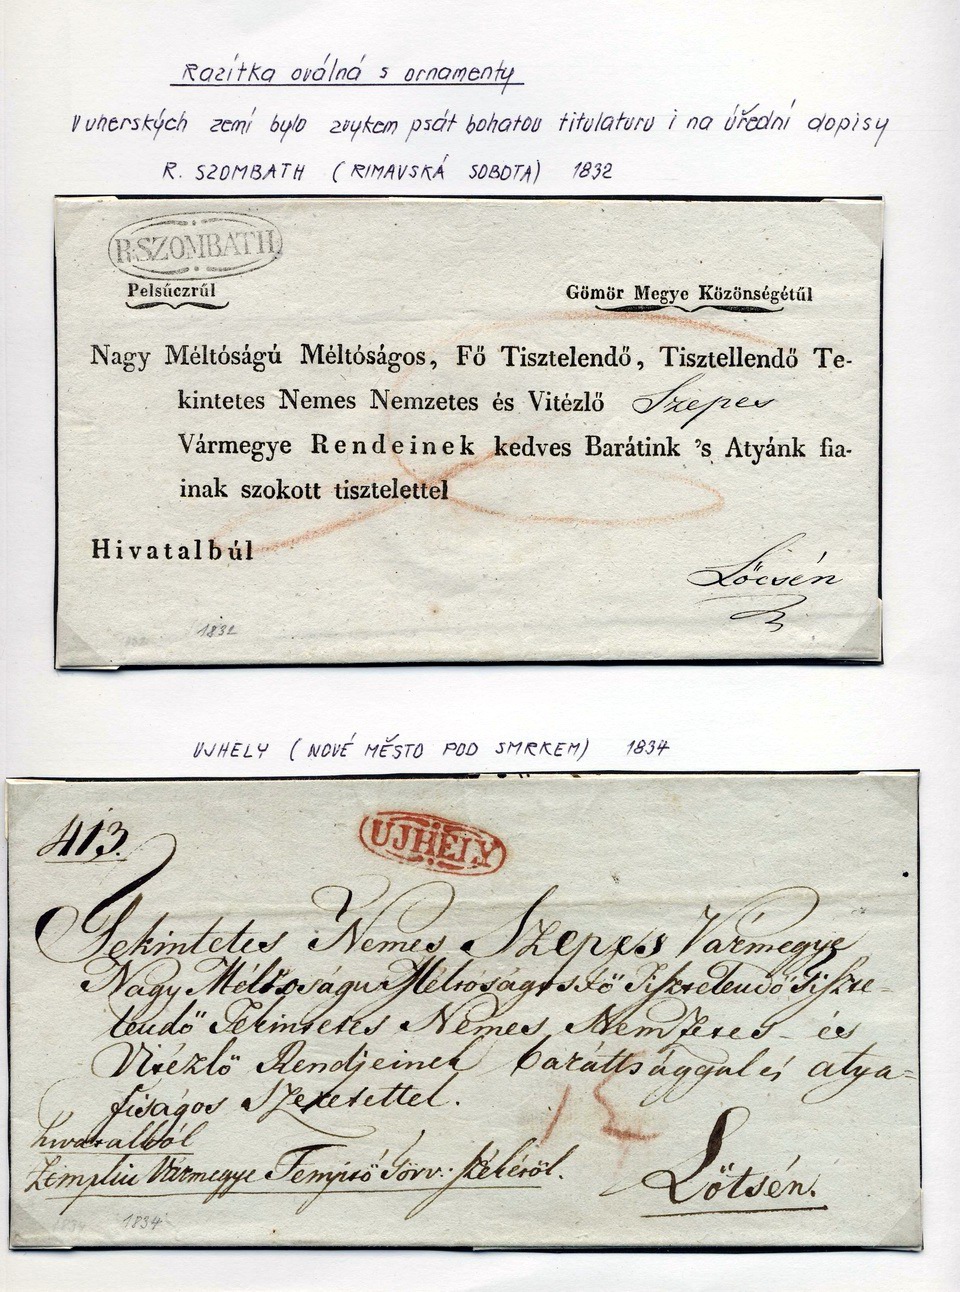 Razítka oválná s ornamenty
V uherských zemí bylo zvykem psát bohatou titulaturu i na úřední dopisy
R. SZOMBATH (RIMAVSKÁ SOBOTA) 1832
R:SZOMBATH
Pelsűczrűl
Gömör Megye Közönségétűl
Nagy Méltóságú Méltóságos, Fő Tisztelendő, Tisztellendő Te-
kintetes Nemes Nemzetes és Vitézlő Szepes
Vármegye Rendeinek kedves Barátink 's Atyánk fia-
inak szokott tisztelettel
Hivatalbúl
Lőcsén
1832
UJHELY (NOVÉ MĚSTO POD SMRKEM) 1834
413.
UJHELY
Tekintetes Nemes Szepes Vármegye
Nagy Méltóságu Méltóságos Fő Tisztelendő Tiszte-
lendő Tekintetes Nemes Nemzetes és
Vitézlő Rendjeinek baráttsággal és atya-
fiságos szeretettel.
hivatalból
Zemplin Vármegye Fenyitő Törv: Székéről.
Lőtsén.
1834